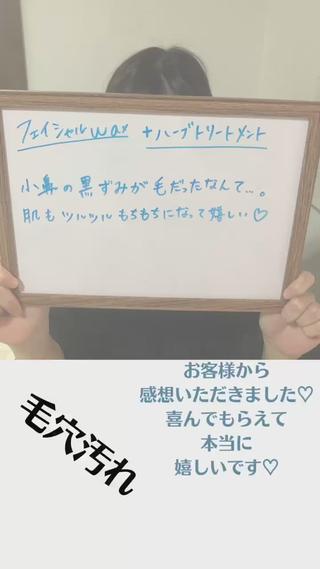 フェイシャルwax +ハーブトリートメント
小鼻の黒ずみが毛だったなんて…。
肌もツルツルもちもちになって嬉しい♡
お客様から
感想いただきました♡
喜んでもらえて
本当に
嬉しいです♡
毛穴汚れ